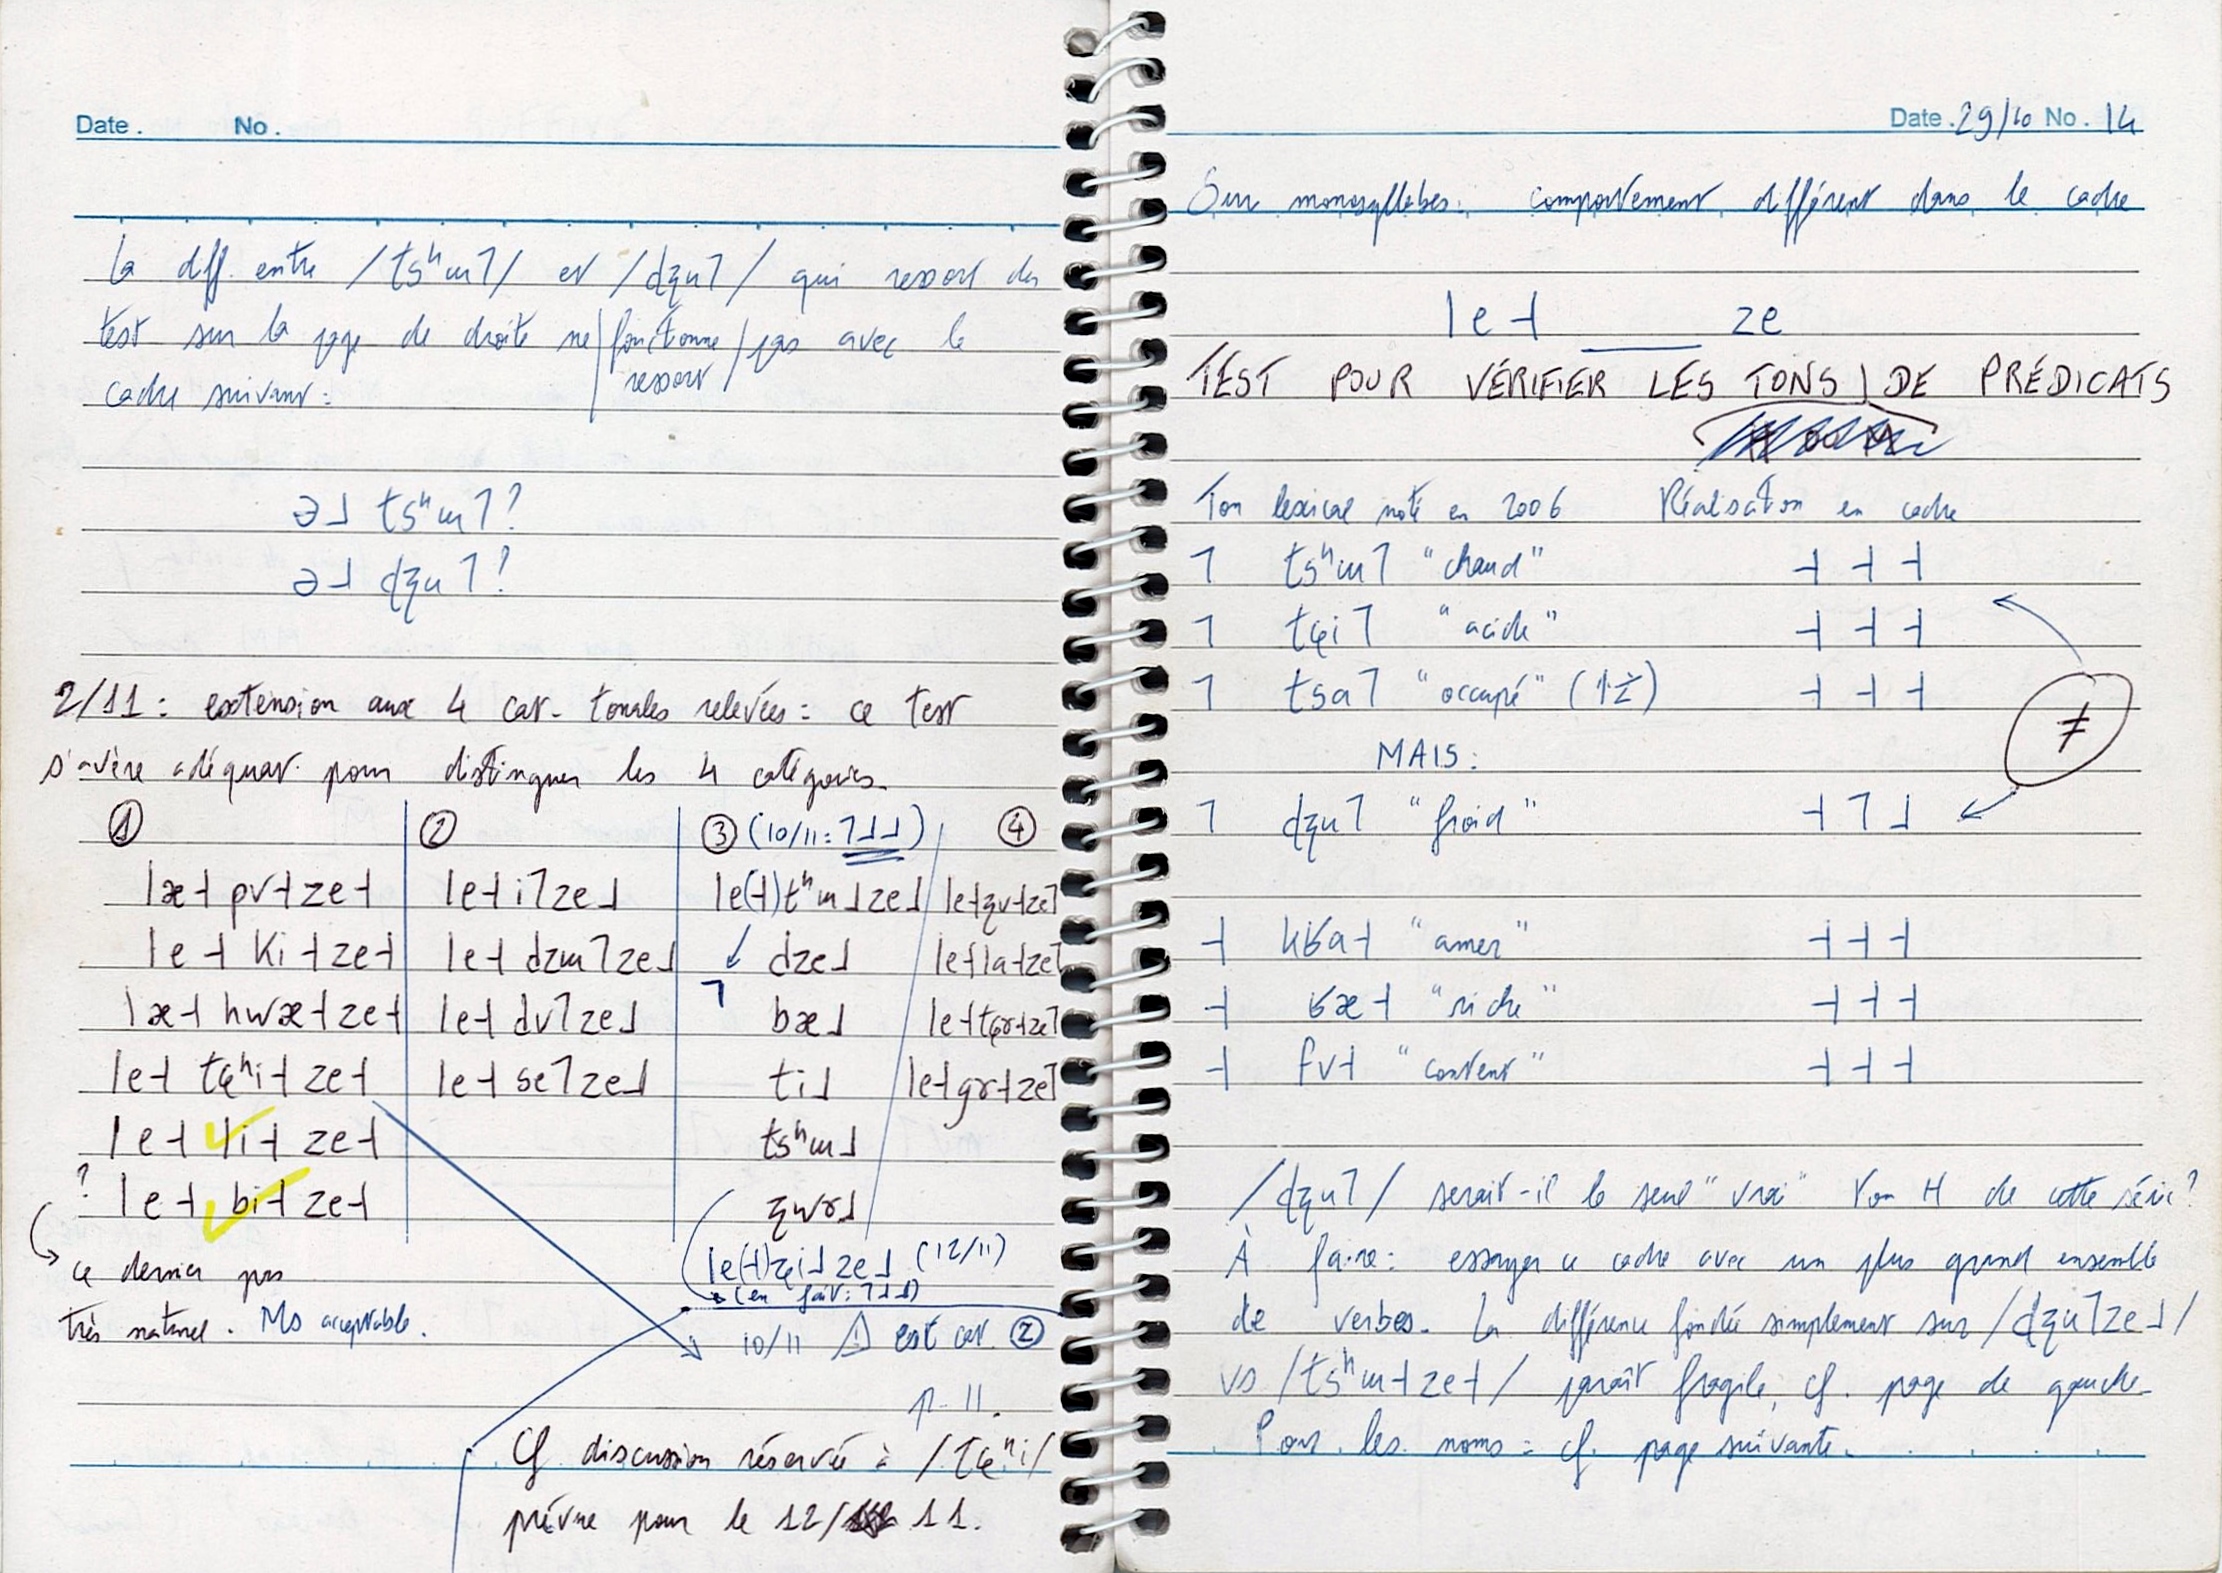 Date. No.
La diff. entre /tsʰɯ˥/ et /dʐu˥/ qui ressort du
test sur la page de droite ne fonctionne pas avec le
ressort
cadre suivant :
ə˩ tsʰɯ˥?
ə˩ dʐu˥?
2/11 : extension aux 4 cat. tonales relevées : ce test
s'avère adéquat pour distinguer les 4 catégories.
① ② ③ (10/11 : ˥˩˩) ④
læ˧ pv˧ ze˧ le˧ i˥ ze˩ le(˧) tʰɯ˩ ze˩ le˧ʐv˧ze˥
le˧ ki˧ ze˧ le˧ dzɯ˥ ze˩ ↙ dze˩ le˧la˧ze˥
læ˧ hwæ˧ ze˧ le˧ dv˥ ze˩ ˥ bæ˩ le˧tɕɤ˧ze˥
le˧ tɕʰi˧ ze˧ le˧ se˥ ze˩ ti˩ le˧gɤ˧ze˥
le˧ li˧ ze˧ tsʰɯ˩
? le˧ bi˧ ze˧ ʐwɤ˩
ce dernier pas
très naturel. Ms acceptable.
le(˧) ʐi˩ ze˩ (12/11)
(en fait : ˥˩˩)
10/11 ⚠ est cat. ②
p. 11.
Cf discussion réservée à /tɕʰi/
prévue pour le 12/11.
Date. 29/10 No. 14
Sur monosyllabes : comportement différent dans le cadre
le˧ ___ ze
TEST POUR VÉRIFIER LES TONS DE PRÉDICATS
Ton lexical noté en 2006 Réalisation en cadre
˥ tsʰɯ˥ "chaud" ˧ ˧ ˧
˥ tɕi˥ "acide" ˧ ˧ ˧
˥ tsa˥ "occupé" (忙) ˧ ˧ ˧
≠
MAIS :
˥ dʐu˥ "froid" ˧ ˥ ˩
˧ kʁa˧ "amer" ˧ ˧ ˧
˧ ʁæ˧ "riche" ˧ ˧ ˧
˧ fv˧ "content" ˧ ˧ ˧
/dʐu˥/ serait-il le seul "vrai" ton H de cette série ?
À faire : essayer ce cadre avec un plus grand ensemble
de verbes. La différence fondée simplement sur /dʐu˥ze˩/
vs /tsʰɯ˧ze˧/ paraît fragile, cf. page de gauche.
Pour les noms : cf. page suivante.